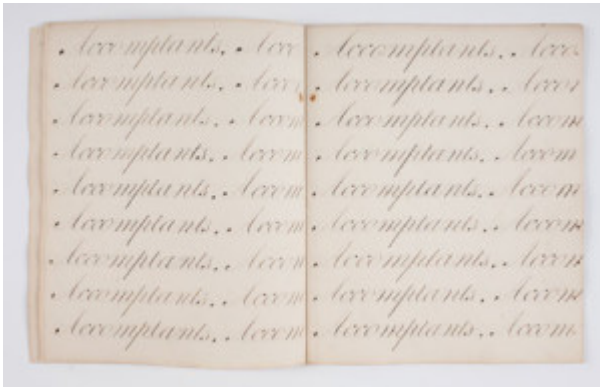 . Accomptants. . Acco
. Accomptants. . Acco
. Accomptants. . Accom
. Accomptants. . Accom
. Accomptants. . Accom
. Accomptants. . Accom
. Accomptants. . Accom
. Accomptants. . Accom
. Accomptants. . Accom
. Accomptants. . Acco
. Accomptants. . Accom
. Accomptants. . Accom
. Accomptants. . Accom
. Accomptants. . Accom
. Accomptants. . Accom
. Accomptants. . Accom
. Accomptants. . Accom
. Accomptants. . Accom